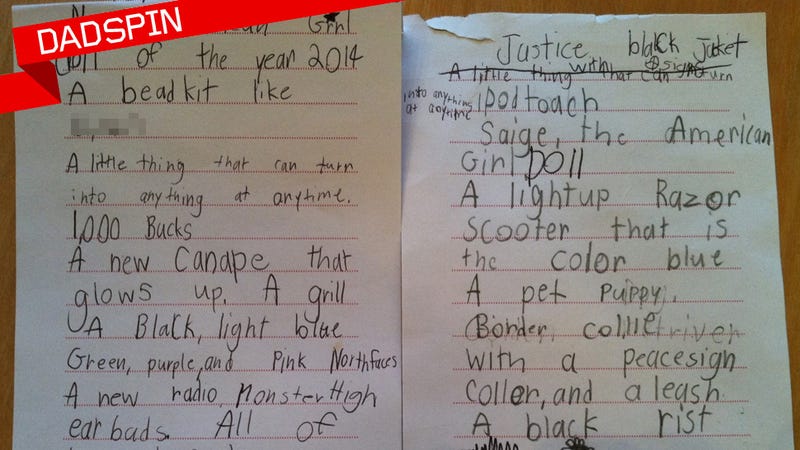 DADSPIN
Girl
Doll of the year 2014
A beadkit like
A little thing that can turn
into anything at anytime.
1,000 Bucks
A new Canape that
glows up. A grill
A Black, light blue
Green, purple, and Pink Northfaces
A new radio, Monster High
ear bads. All of
Justice black Jacket
A little thing with that can turn
into anything
at anytime
ipodtoach
Saige, the American
Girl Doll
A lightup Razor
Scooter that is
the color blue
A pet puppy.
Border, collie
with a peacesign
Coller, and a leash.
A black rist